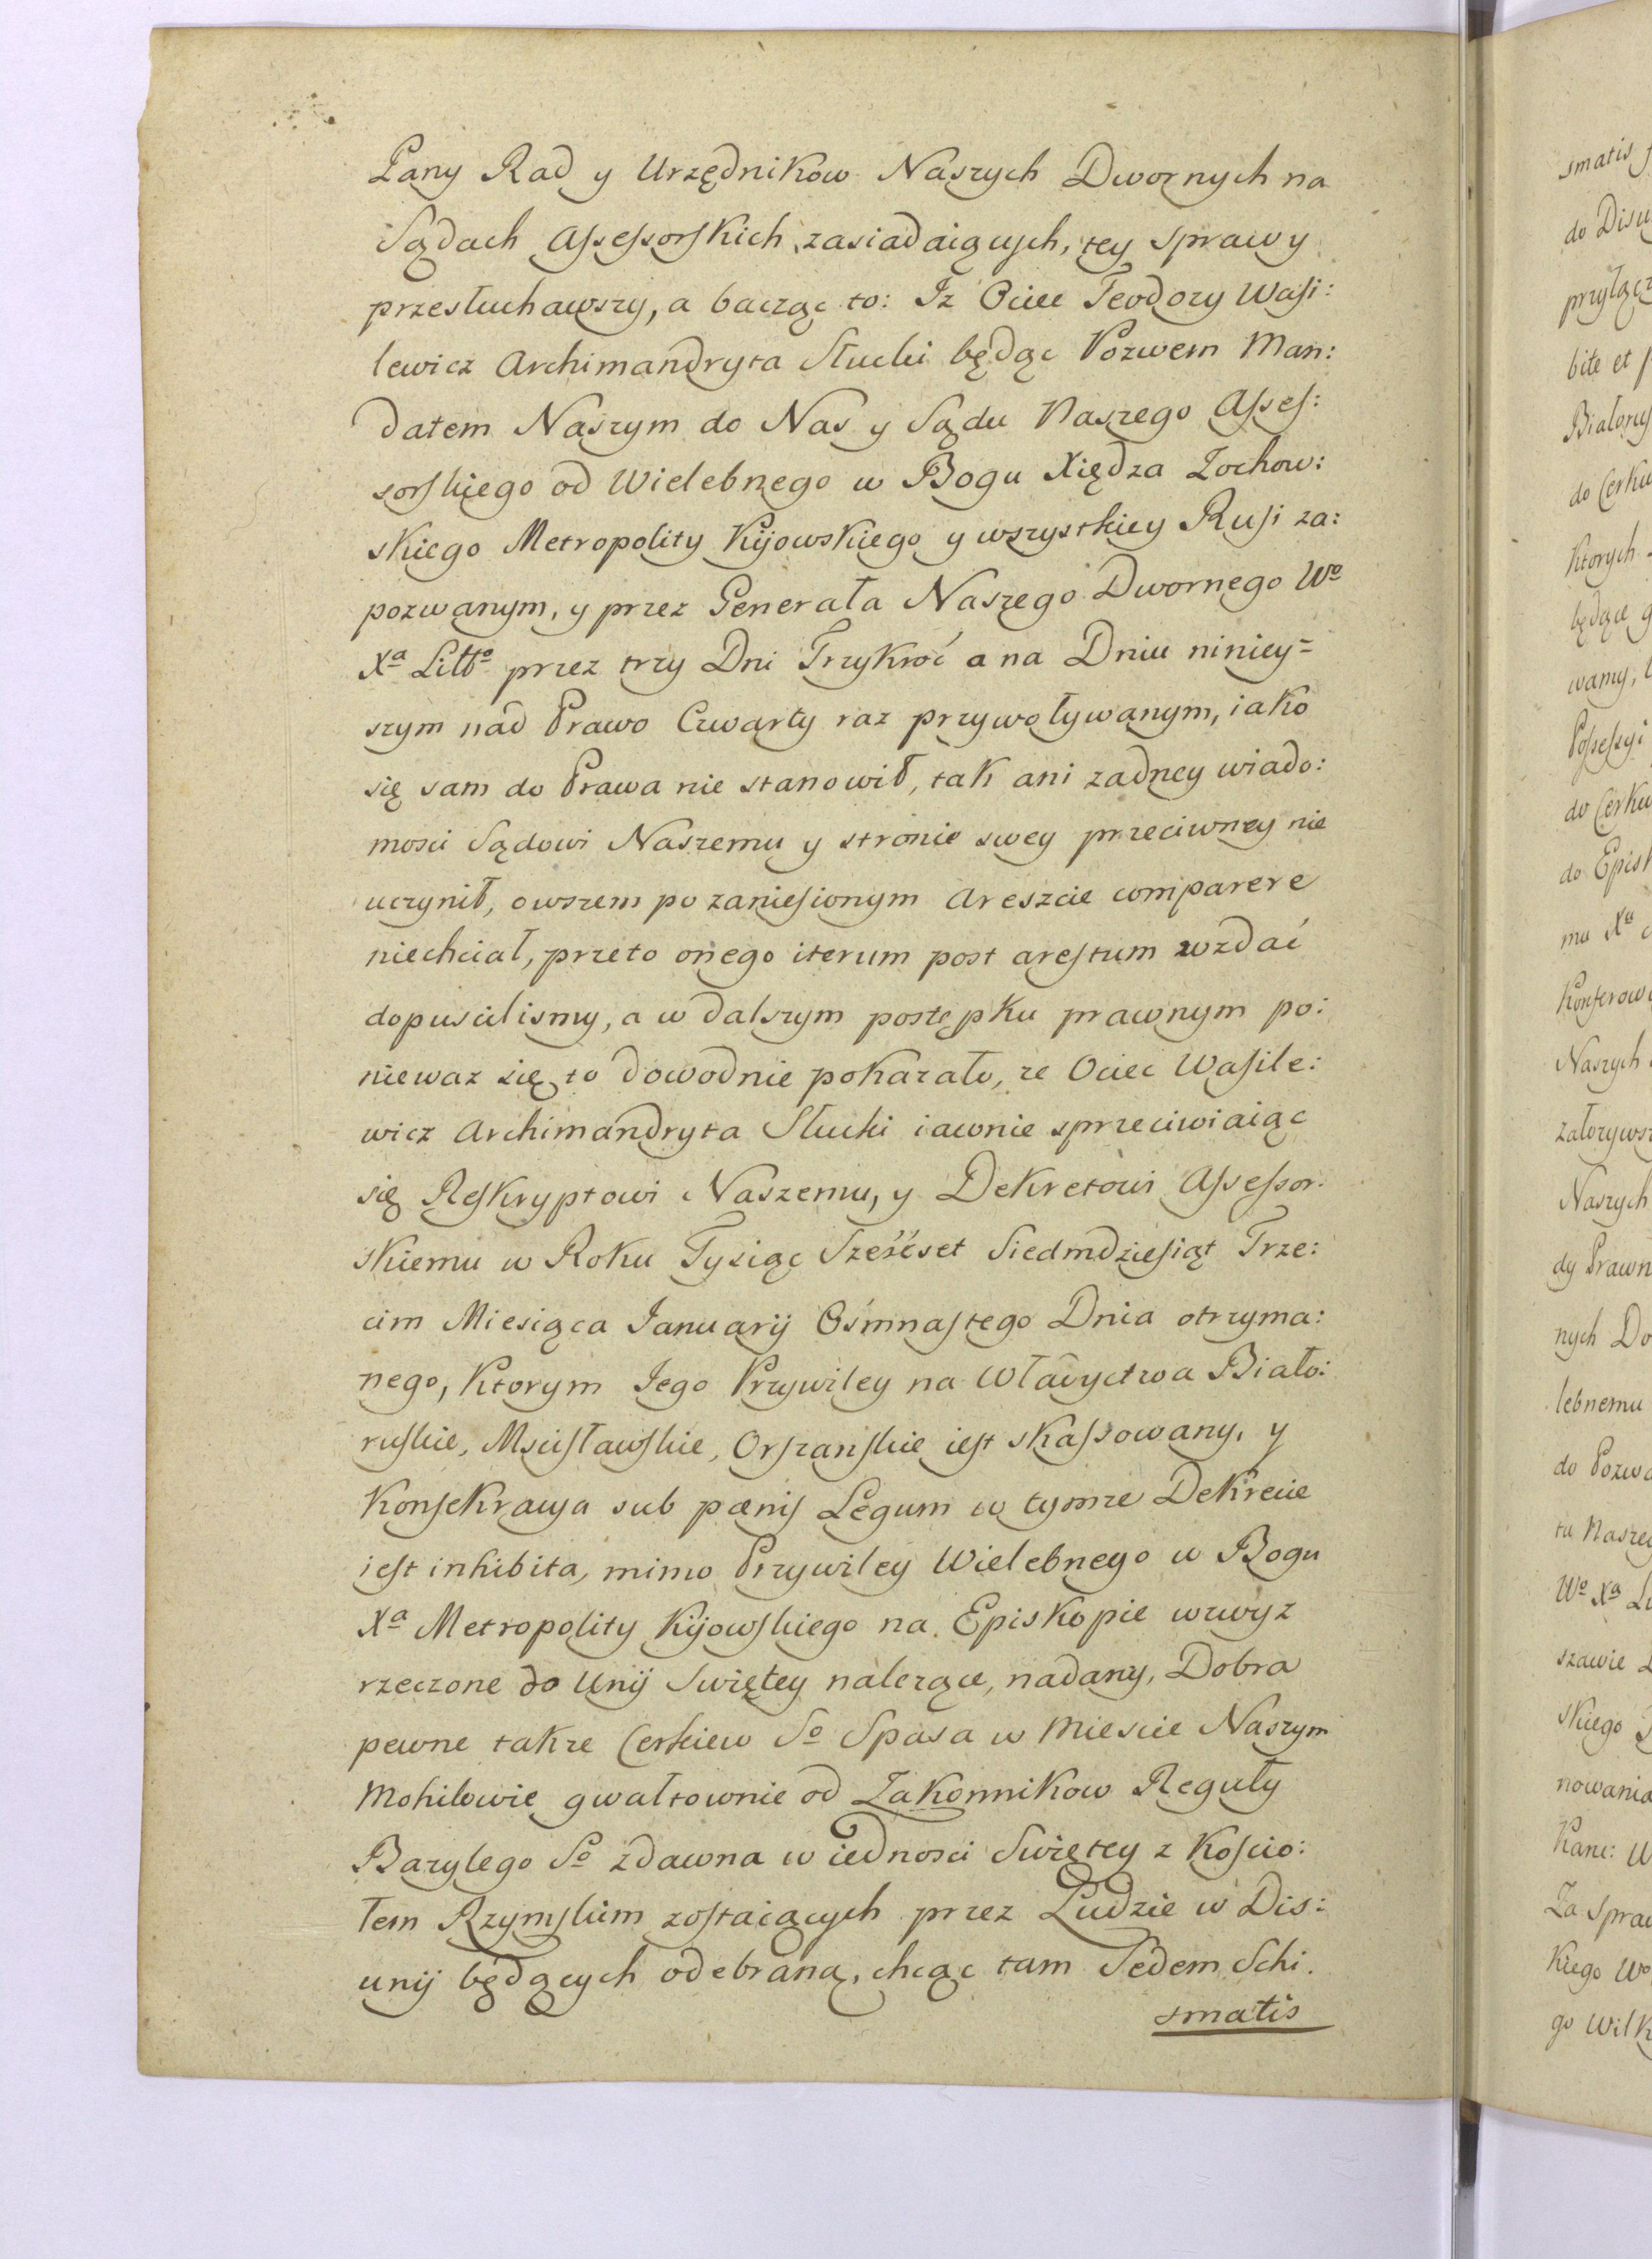 Pany Rad y Urzędnikow Naszych Dwornych na
Sądach Assessorskich zasiadaiących, tey sprawy
przesłuchawszy, a bacząc to: Iz Ociec Teodozy Wasi:
lewicz Archimandryta Słucki będąc Pozwem Man:
datem Naszym do Nas y Sądu Naszego Asses:
sorskiego od Wielebnego w Bogu Xiędza Zochow:
skiego Metropolity Kijowskiego y wszystkiey Rusi za:
pozwanym, y przez Generała Naszego Dwornego Wo
Xa Litto przez trzy Dni Trzykroć a na Dniu niniey=
szym nad Prawo Czwarty raz przywoływanym, iako
się sam do Prawa nie stanowił, tak ani zadney wiado:
mosci Sądowi Naszemu y stronie swey przeciwney nie
uczynił, owszem po zaniesionym Areszcie comparere
niechciał, przeto onego iterum post arestum wzdać
dopuscilismy, a w dalszym postępku prawnym po:
niewaz się to dowodnie pokazało, ze Ociec Wasile:
wicz Archimandryta Słucki iawnie sprzeciwiaiąc
się Reskryptowi Naszemu, y Dekretowi Assessor:
skiemu w Roku Tysiąc Sześćset Siedmdziesiąt Trze:
cim Miesiąca Ianuarij Ośmnastego Dnia otrzyma:
nego, Ktorym Iego Przywiley na Władyctwa Biało:
ruskie, Mscisławskie, Orszanskie iest skassowany, y
Konsekracya sub pœnis Legum w tymze Dekrecie
iest inhibita, mimo Przywiley Wielebnego w Bogu
Xa Metropolity Kijowskiego na Episkopie wzwyz
rzeczone do Unij Swiętey nalezące, nadany, Dobra
pewne takze Cerkiew So Spasa w Miescie Naszym
Mohilowie gwałtownie od Zakonnikow Reguły
Bazylego So zdawna w iednosci Swiętey z Koscio:
łem Rzymskim zostaiących przez Ludzie w Dis:
unij będących odebraną, chcąc tam Sedem Schi.
smatis
smatis
do Disu
przyłącz
bite et p
Białorus
do Cerkw
Ktorych
będące g
wamy,
Possessyi
do Cerkw
do Episk
mu Xa
Konferow
Naszych
załozyws
Naszych
dy Prawn
nych Do
lebnemu
do Pozwa
tu Naszeg
Wo Xa Li
szawie
skiego
nowania
Kanc: W
Za spraw
Kiego Wo
go Wilk